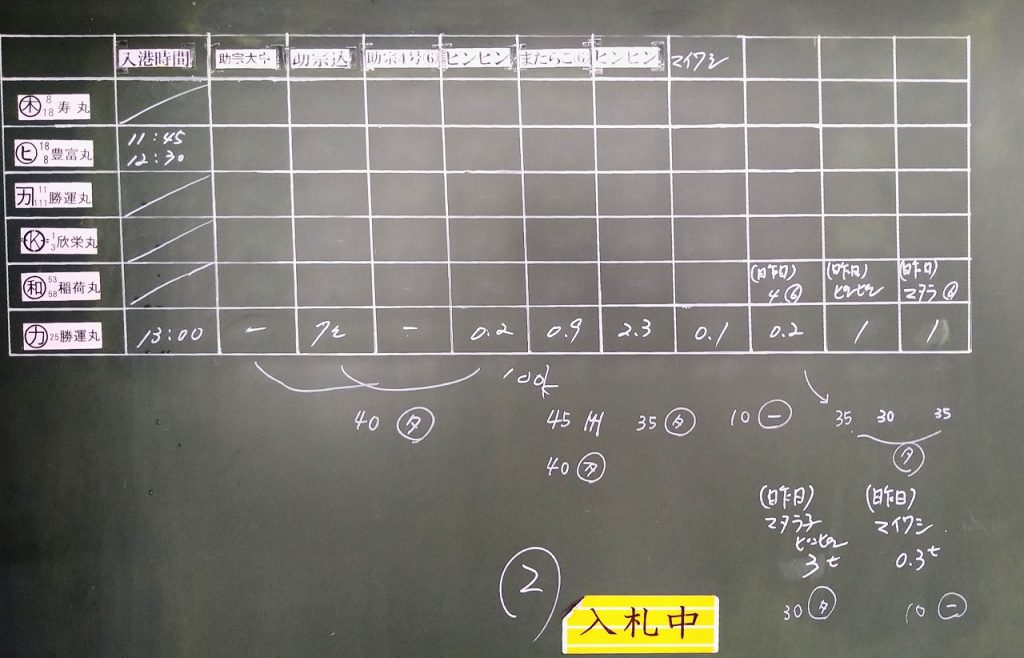 入港時間 助宗大中 助宗込 助宗4号(6) ピンピン またらこ(6) ピンピン マイワシ
木 8 18 寿丸
ヒ 18 8 豊富丸 11:45 12:30
カ 11 111 勝運丸
K 1 3 欣栄丸
和 53 58 稲荷丸 (昨日) 4⑥ (昨日) ピンピン (昨日) マタラ⑥
カ 25 勝運丸 13:00 - - 0.2 0.9 2.3 0.1 0.2 1 1
100
40 タ 45 35 タ 10 一 35 30 35
40 タ
(昨日) (昨日)
マタラ子 マイワシ
ピンピン
3t 0.3t
30 タ 10 一
2
入札中